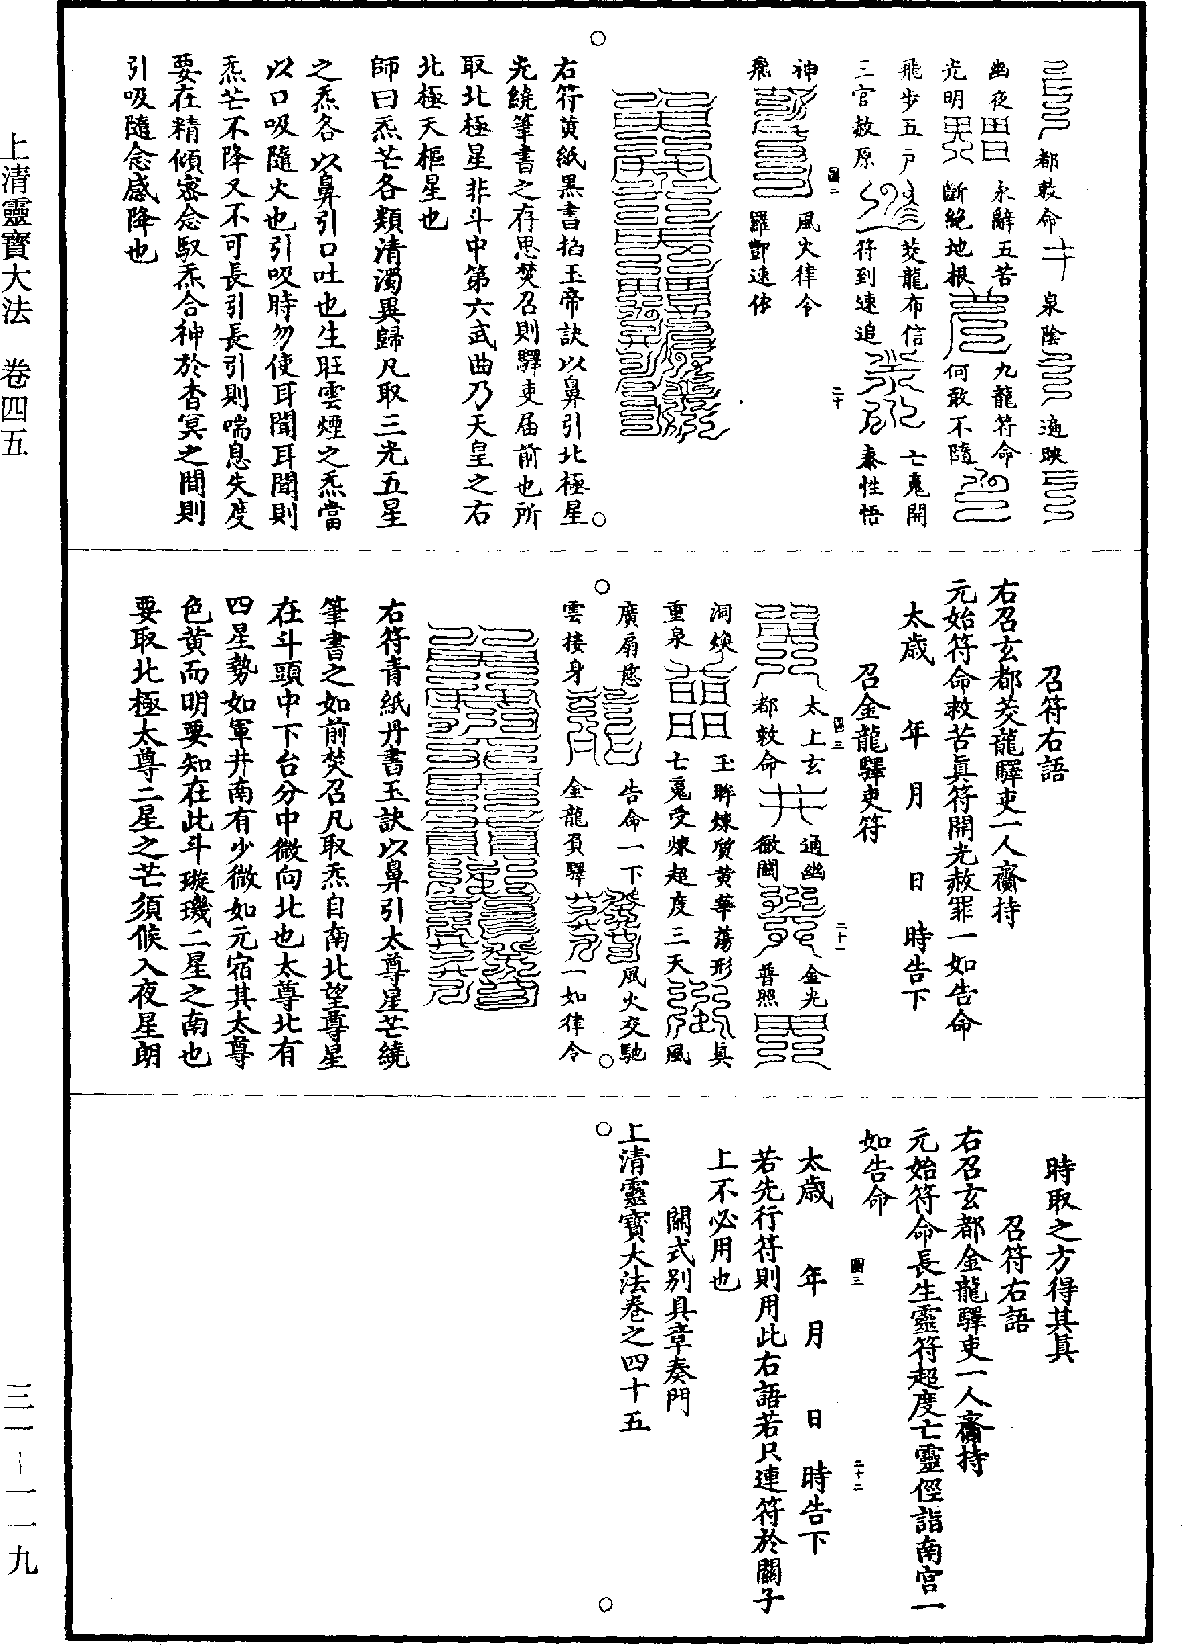 上清靈寶大法　卷四五
三一－一一九
都敕命　泉陰　遍映
幽夜　永辭五苦　九龍符命
光明　斷絶地根　何敢不隨
飛步五戸　茭龍布信　七䰟開
三官赦原　符到速追　泰性悟
圖二
二十
神　風火律令
飛　羅酆速依
右符黄紙黑書掐玉帝訣以鼻引北極星
光繞筆書之存思焚召則驛吏届前也所
取北極星非斗中第六武曲乃天皇之右
北極天樞星也
師曰炁芒各類清濁異歸凡取三光五星
之炁各以鼻引口吐也生旺雲煙之炁當
以口吸隨火也引吸時勿使耳聞耳聞則
炁芒不降又不可長引長引則喘息失度
要在精傾密念馭炁合神於杳冥之間則
引吸隨念感降也
召符右語
右召玄都茭龍驛吏一人齎持
元始符命救苦眞符開光赦罪一如告命
太歳　年　月　日　時告下
召金龍驛吏符
圖三
二十一
太上玄　通幽　金光
都敕命　徹開　普照
洞煥　玉眸煉質黄華蕩形　眞
重泉　七䰟受煉超度三天　風
廣扇慈　告命一下　風火交馳
雲接身　金龍負驛　一如律令
右符青紙丹書玉訣以鼻引太尊星芒繞
筆書之如前焚召凡取炁自南北望尊星
在斗頭中下台分中微向北也太尊北有
四星勢如軍井南有少微如元宿其太尊
色黄而明要知在此斗璇璣二星之南也
要取北極太尊二星之芒須候入夜星朗
時取之方得其眞
召符右語
右召玄都金龍驛吏一人齎持
元始符命長生靈符超度亡靈徑詣南宮一
如告命
圖三
二十二
太歳　年　月　日　時告下
若先行符則用此右語若只連符於關子
上不必用也
關式別具章奏門
上清靈寶大法卷之四十五